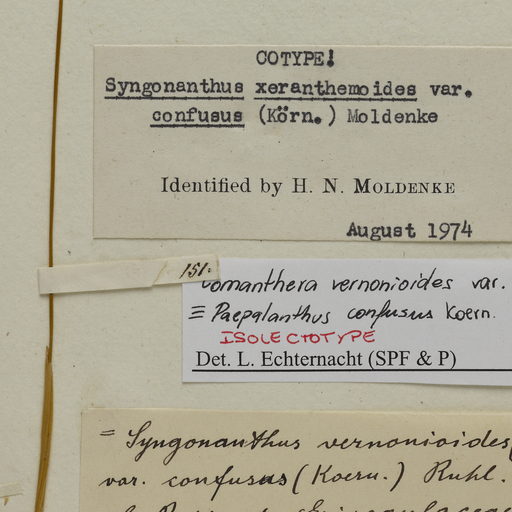 COTYPE!
Syngonanthus xeranthemoides var.
confusus (Körn.) Moldenke
Identified by H. N. MOLDENKE
August 1974
151.
vernonioides var.
≡ Paepalanthus confusus Koern.
ISOLECTOTYPE
Det. L. Echternacht (SPF & P)
= Syngonanthus vernonioides(
var. confusus (Koern.) Ruhl.